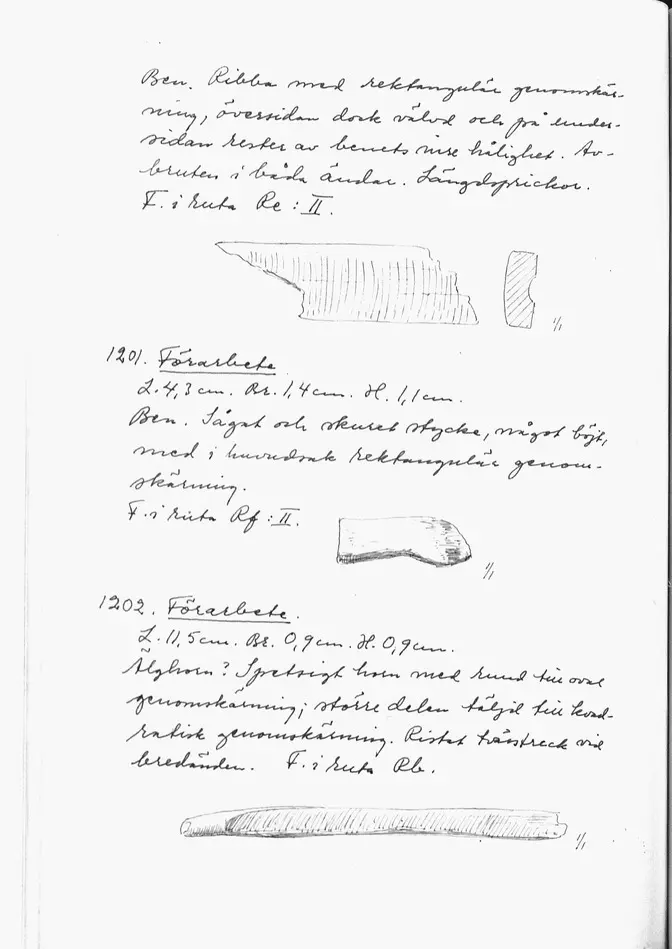 Ben. Ribba med rektangulär genomskär-
ning, översidan dock välvd och på under-
sidan rester av benets inre hålighet. Av-
bruten i båda ändar. Längdsprickor.
F. i ruta Re : II.
1/1
1201. Förarbete
L. 4,3 cm. Br. 1,4 cm. H. 1,1 cm.
Ben. Sågat och skuret stycke, något böjt,
med i huvudsak rektangulär genom-
skärning.
F. i ruta Rf : II.
1/1
1202. Förarbete.
L. 11,5 cm. Br. 0,9 cm. H. 0,9 cm.
Älghorn? Spetsigt horn med rund till oval
genomskärning; större delen täljd till kvad-
ratisk genomskärning. Ristat tvärstreck vid
bredänden. F. i ruta Rb.
1/1